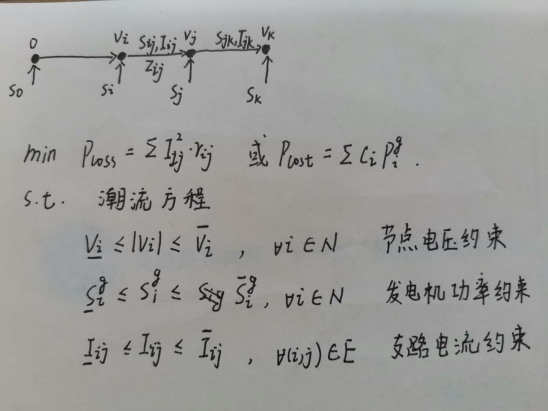 0 Vi Sij,Iij Vj Sjk,Ijk Vk
S0 Si Zij Sj Sk
min Ploss = Σ I²ij·rij 或 Pcost = Σ Ci Pᵍi .
s.t. 潮流方程
V̲i ≤ |Vi| ≤ V̄i , ∀i∈N 节点电压约束
S̲ᵍi ≤ Sᵍi ≤ S̄ᵍi , ∀i∈N 发电机功率约束
I̲ij ≤ Iij ≤ Īij , ∀(i,j)∈E 支路电流约束